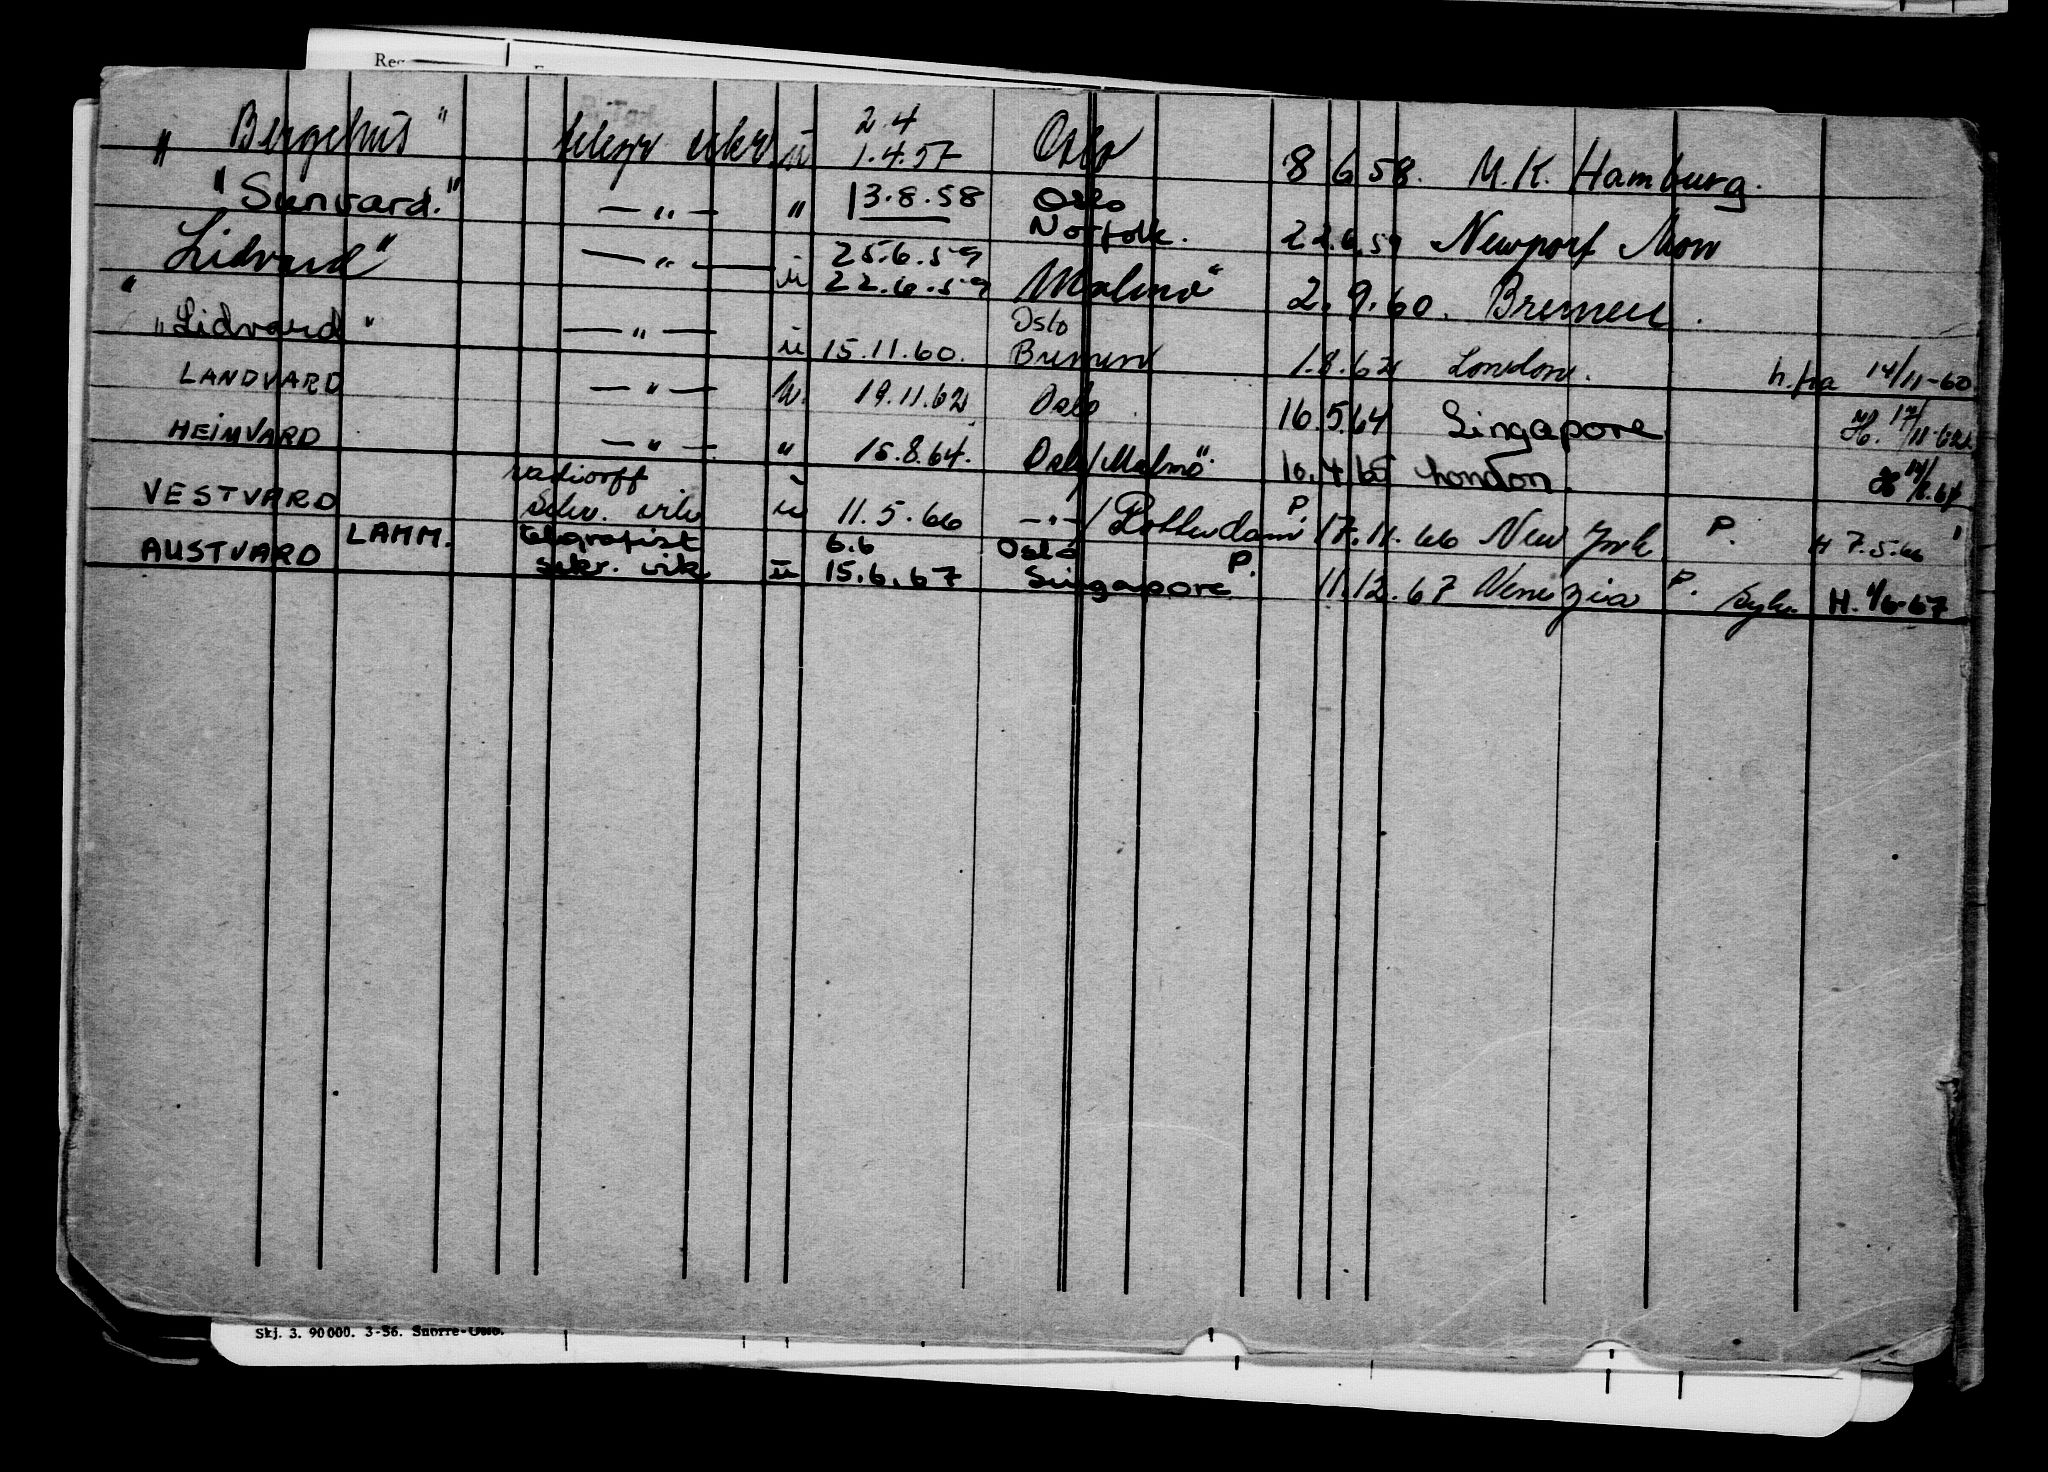 Reg
2.4
" Bergehus" telegr sekr. u 1.4.57 Oslo 8 6 58. M.K. Hamburg.
"Sunvard." —"— " 13.8.58 Oslo
Norfolk. 22.6.59 Newport Mon
Lidvard" —"— u 25.6.59
22.6.59 Malmö" 2.9.60. Bremen.
"Lidvard" —"— u 15.11.60. Oslo
Bremen 1.8.62 London. h.fra 14/11-60
LANDVARD —"— u. 19.11.62 Oslo. 16.5.64 Singapore H. 17/11-62
HEIMVARD —"— " 15.8.64. Oslo/Malmö. 10.4.65 London. H 14/8.64
radiooff
VESTVARD Sekr. vik u 11.5.66 —"—/Rotterdam P. 17.11.66 New York P. H 7.5.66
LAMM. telegrafist 6.6 Oslo
AUSTVARD sekr. vik u 15.6.67 Singapore P. 11.12.67 Venezia P. Syk. H. 1/6-67
Skj. 3. 90000. 3-56. Snorre-Oslo.